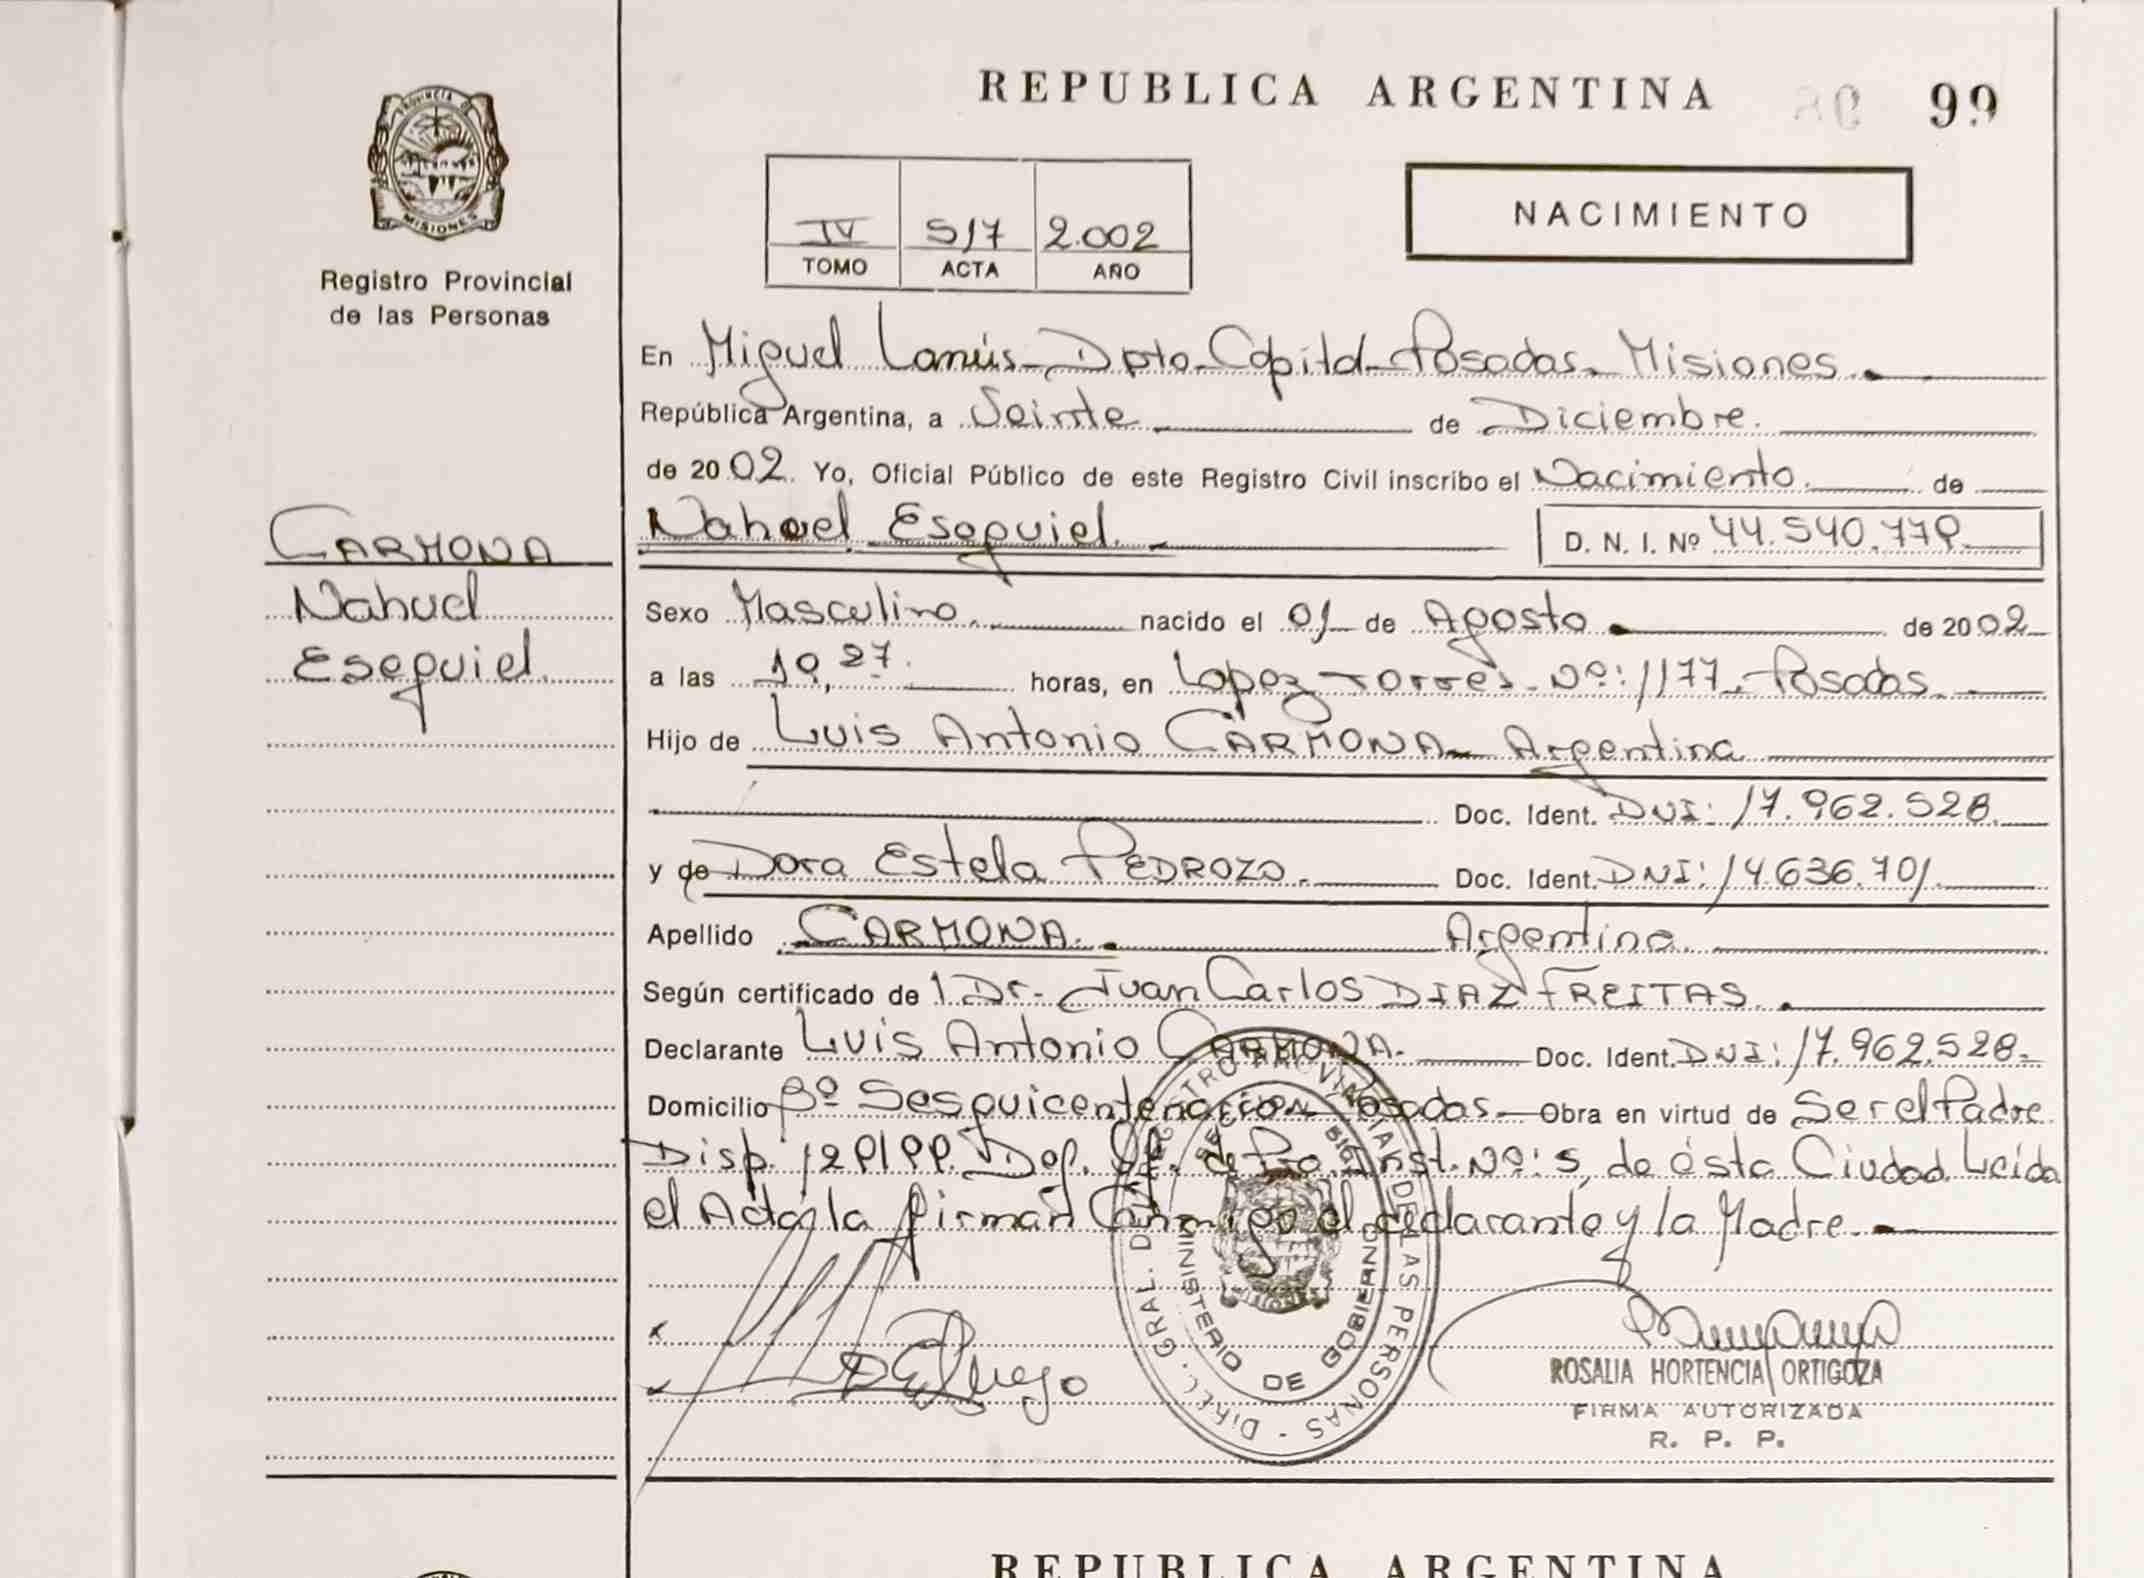 REPUBLICA ARGENTINA 99
PROVINCIA DE
MISIONES
Registro Provincial
de las Personas
IV 517 2.002
TOMO ACTA AÑO
NACIMIENTO
En Miguel Lanús - Dpto. Capital - Posadas. Misiones.
República Argentina, a Veinte de Diciembre.
de 2002. Yo, Oficial Público de este Registro Civil inscribo el Nacimiento. de
CARMONA
Nahuel
Esequiel.
Nahuel Esequiel. D. N. I. Nº
Sexo Masculino. nacido el 01 de Agosto de 2002
a las horas, en Lopez Torres. Nº: 1177. Posadas.
Hijo de Luis Antonio CARMONA - Argentina
Doc. Ident. DNI: 17.962.528.
y de Dora Estela PEDROZO. Doc. Ident. DNI: 14.636.701.
Apellido CARMONA. Argentina.
Según certificado de 1 Dr. Juan Carlos DIAZ FREITAS.
Declarante Luis Antonio CARMONA. Doc. Ident. DNI: 17.962.528.
Domicilio Bº Sesquicentenario Posadas - Obra en virtud de Ser el Padre.
Disp. Inst. Nº: 5, de ésta Ciudad. Leida
el Acta, la firman Conmigo el declarante y la Madre.
DIREC. GRAL. DEL REGISTRO PROVINCIAL DE LAS PERSONAS
MINISTERIO DE GOBIERNO
ROSALIA HORTENCIA ORTIGOZA
FIRMA AUTORIZADA
R. P. P.
REPUBLICA ARGENTINA